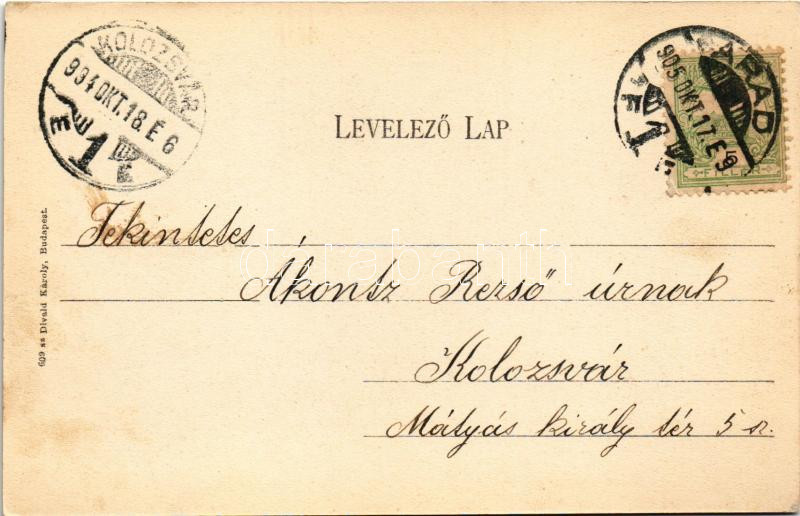 KOLOZSVÁR
904 OKT. 18. É 6
1
ARAD
905 OKT. 17. É 9
1
FILLÉR
LEVELEZŐ LAP
Tekintetes
Ákontz Rezső úrnak
Kolozsvár
Mátyás király tér 5 sz.
609 sz Divald Károly, Budapest.
darabanth